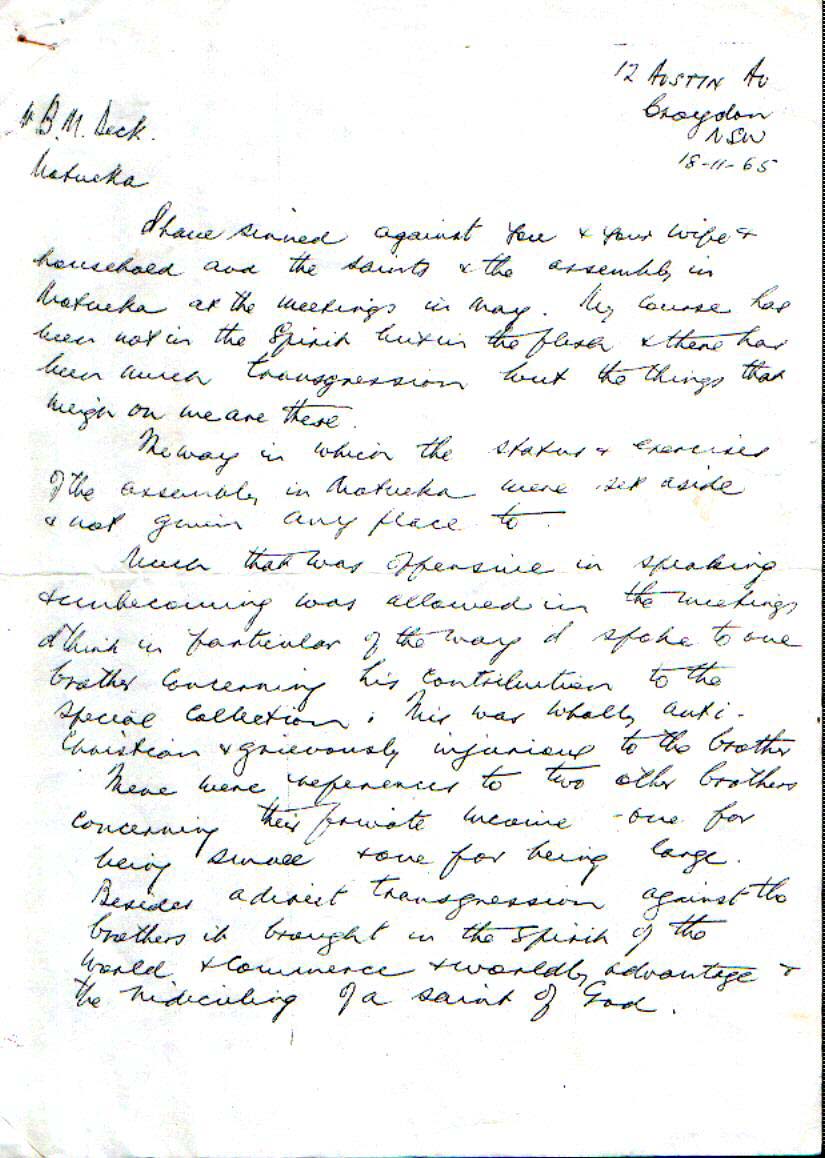 12 AUSTIN AV
Croydon
NSW
18-11-65
B. M. Deck.
Motueka
I have sinned against you & your wife &
household and the saints & the assembly in
Motueka at the meetings in May. My course has
been not in the Spirit but in the flesh & there has
been much transgression but the things that
weigh on me are these.
The way in which the status & exercises
of the assembly in Motueka were set aside
& not given any place to.
Much that was offensive in speaking
& unbecoming was allowed in the meetings
I think in particular of the way I spoke to one
brother concerning his contribution to the
special collection. This was wholly anti-
Christian & grievously injurious to the brother
There were references to two other brothers
concerning their private income - one for
being small & one for being large.
Besides a direct transgression against the
brothers it brought in the spirit of the
world & commerce & worldly advantage &
the ridiculing of a saint of God.